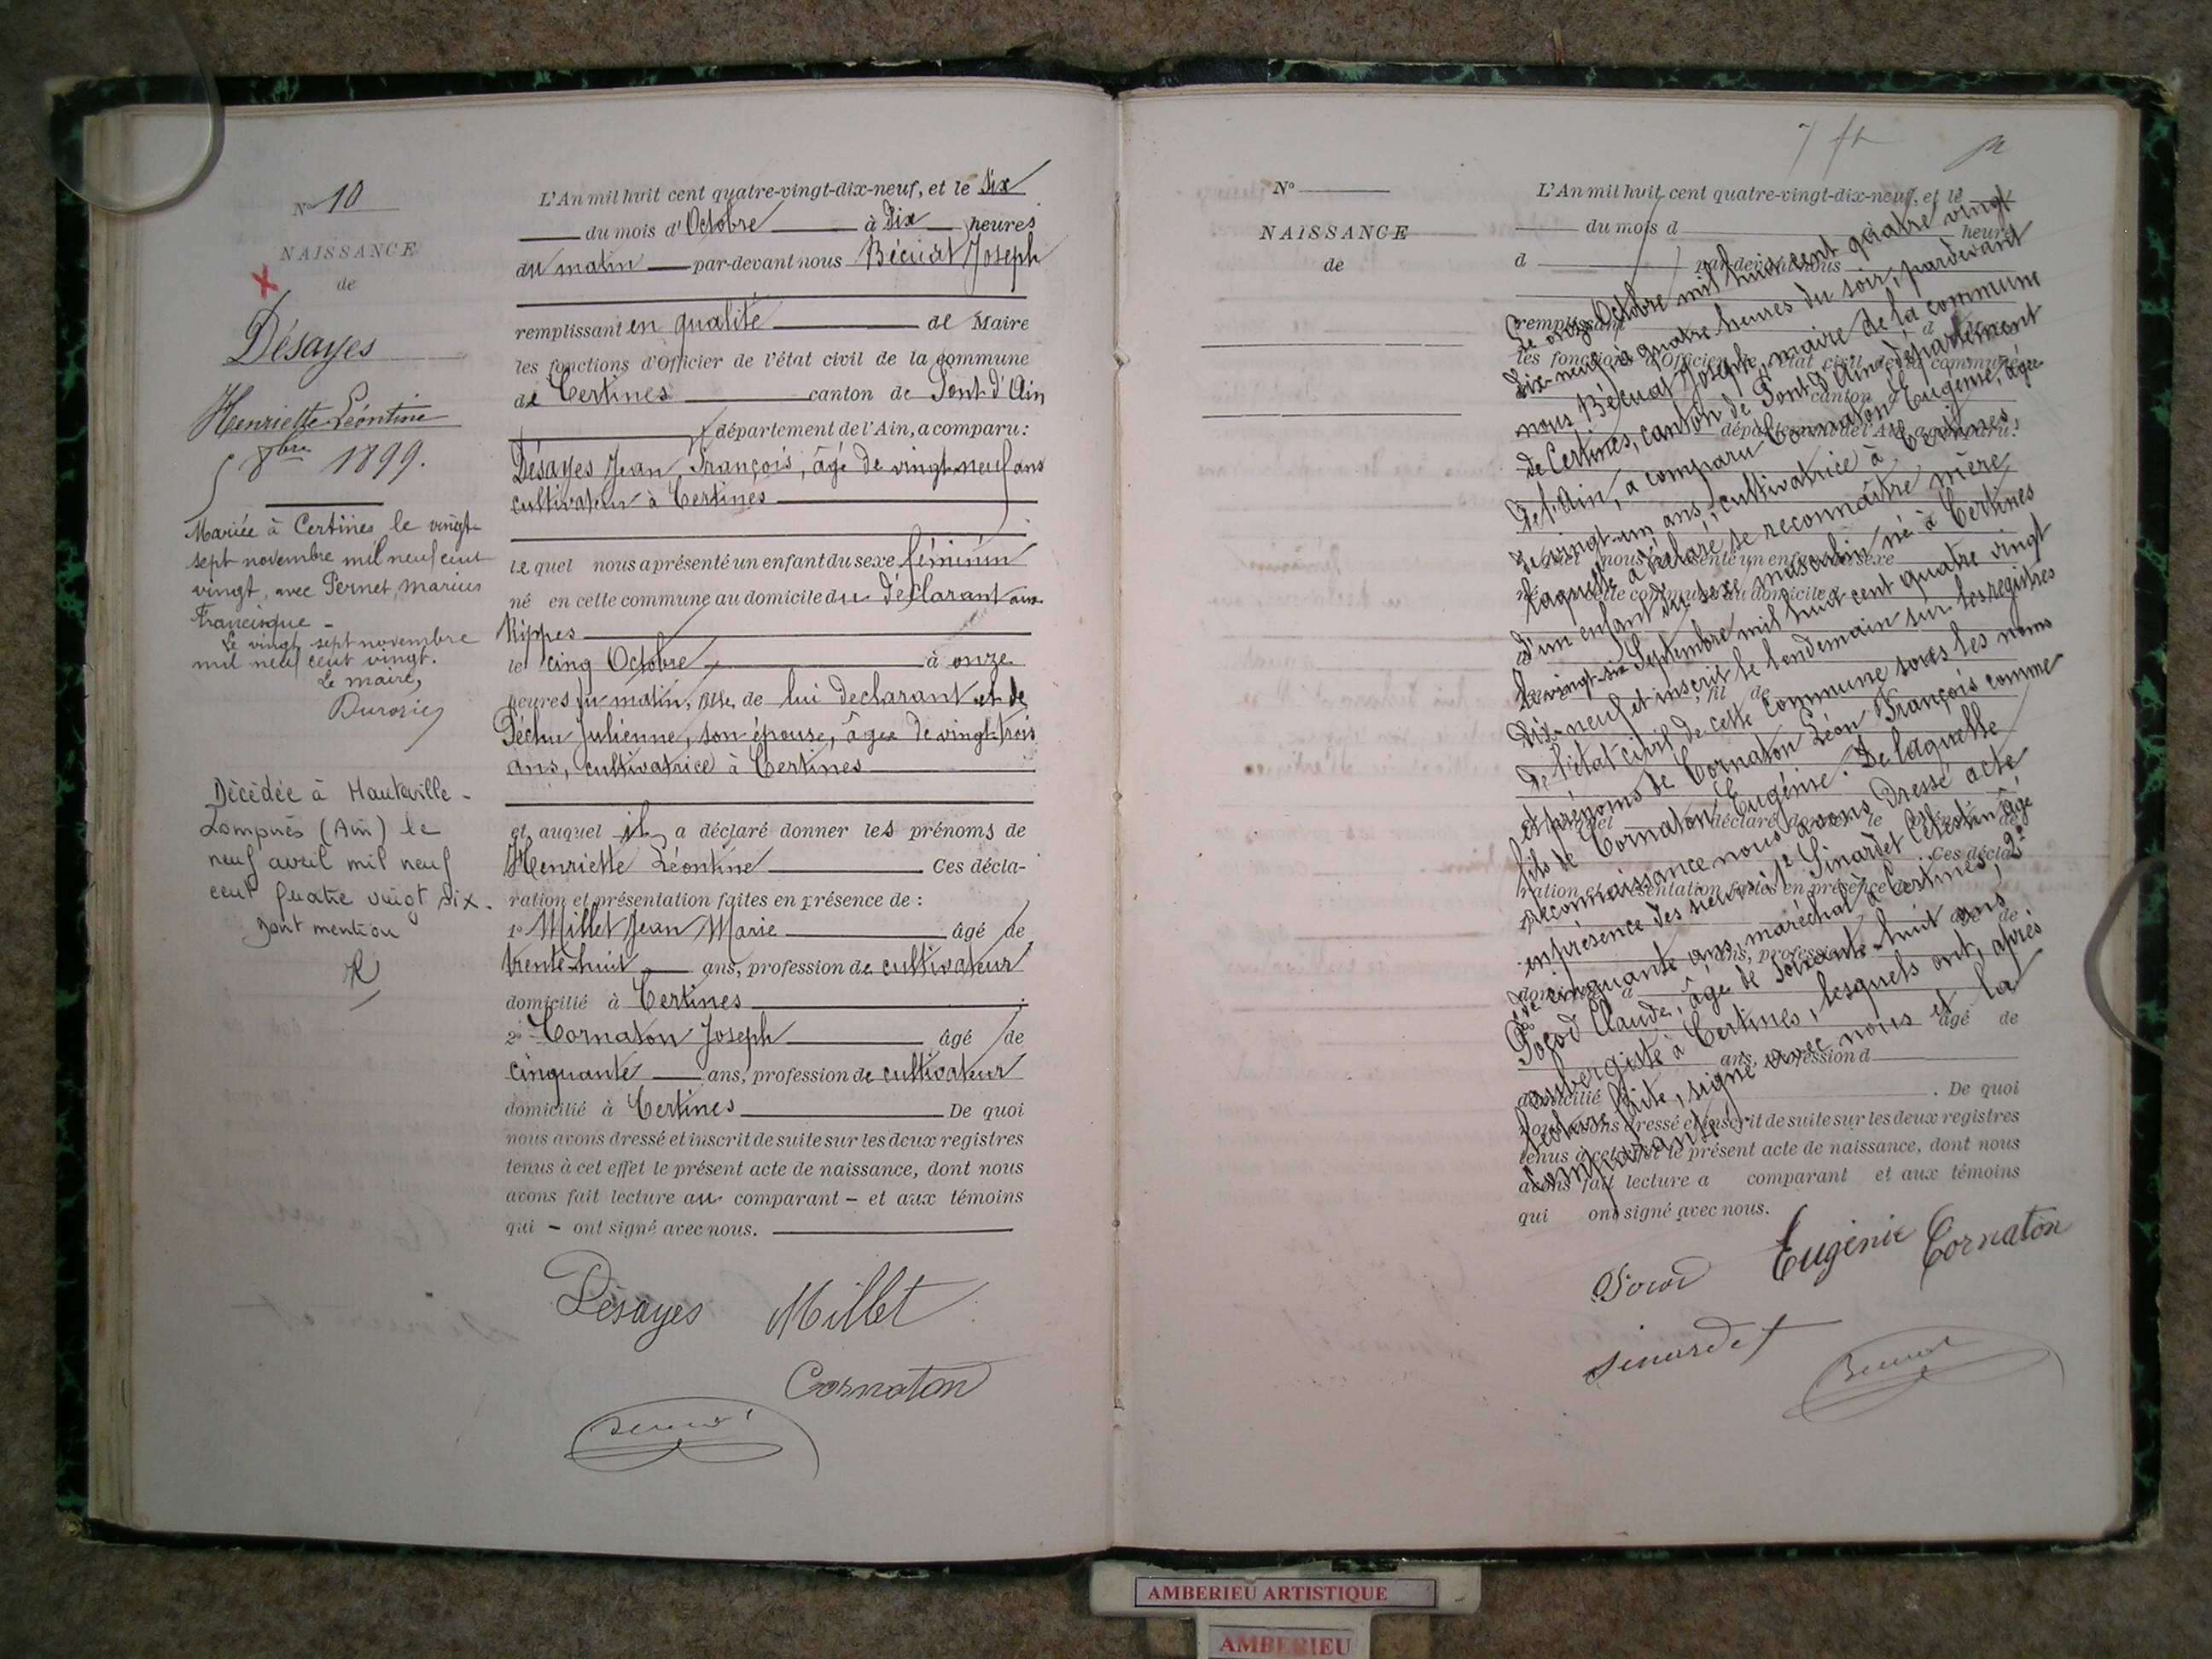 N° 10
NAISSANCE
de
Désayes
Henriette Léontine
5 8bre 1899.
Mariée à Certines le vingt-
sept novembre mil neuf cent
vingt, avec Pernet, Marius
Francisque -
Le vingt sept novembre
mil neuf cent vingt.
Le maire,
Décédée à Hauteville-
Lompnès (Ain) le
neuf avril mil neuf
cent quatre vingt six.
dont mention
L'An mil huit cent quatre-vingt-dix-neuf, et le Six
du mois d'Octobre à Dix heures
du matin par-devant nous Bécuat Joseph
remplissant en qualité de Maire
les fonctions d'Officier de l'état civil de la commune
de Certines canton de Pont d'Ain
département de l'Ain, a comparu:
Désayes Jean François, âgé de vingt-neuf ans
cultivateur à Certines
lequel nous a présenté un enfant du sexe féminin
né en cette commune au domicile du déclarant aux
Rippes
le cinq Octobre à onze
heures du matin, fille de lui declarant et de
Péchu Julienne, son épouse, âgée de vingt-trois
ans, cultivatrice à Certines
et auquel il a déclaré donner les prénoms de
Henriette Léontine Ces décla-
ration et présentation faites en présence de :
1° Millet Jean Marie âgé de
trente-huit ans, profession de cultivateur
domicilié à Certines
2° Cornaton Joseph âgé de
cinquante ans, profession de cultivateur
domicilié à Certines De quoi
nous avons dressé et inscrit de suite sur les deux registres
tenus à cet effet le présent acte de naissance, dont nous
avons fait lecture au comparant - et aux témoins
qui - ont signé avec nous.
Désayes Millet
Cornaton
N°
NAISSANCE
de
L'An mil huit cent quatre-vingt-dix-neuf, et le
du mois d heure
d par-devant nous
Le onze Octobre mil huit cent quatre vingt
Dix-neuf, à quatre heures du soir, pardevant
nous Bécuat Joseph, maire de la commune
de Certines, canton de Pont d'Ain, département
de l'Ain, a comparu Cornaton Eugénie, âgée
de vingt-un ans, cultivatrice à Certines,
laquelle a déclaré se reconnaître mère
d'un enfant du sexe masculin né à Certines
le vingt-six Septembre mil huit cent quatre vingt
dix-neuf et inscrit le lendemain sur les registres
de l'état civil de cette commune sous les noms
et prénoms de Cornaton Léon François comme
fils de Cornaton Eugénie. De laquelle
reconnaissance nous avons dressé acte
en présence des sieurs: 1° Sinardet Célestin âgé
de cinquante ans, maréchal à Certines, 2°
Pocod Claude, âgé de soixante-huit ans,
aubergiste à Certines, lesquels ont, après
lecture faite, signé avec nous et la
comparante.
Ces décla-
ration et présentation faites en présence de
âgé de
ans, profession d
domicilié De quoi
nous avons dressé et inscrit de suite sur les deux registres
tenus à cet effet le présent acte de naissance, dont nous
avons fait lecture a comparant et aux témoins
qui ont signé avec nous.
Pocod Eugénie Cornaton
Sinardet
AMBERIEU ARTISTIQUE
AMBERIEU